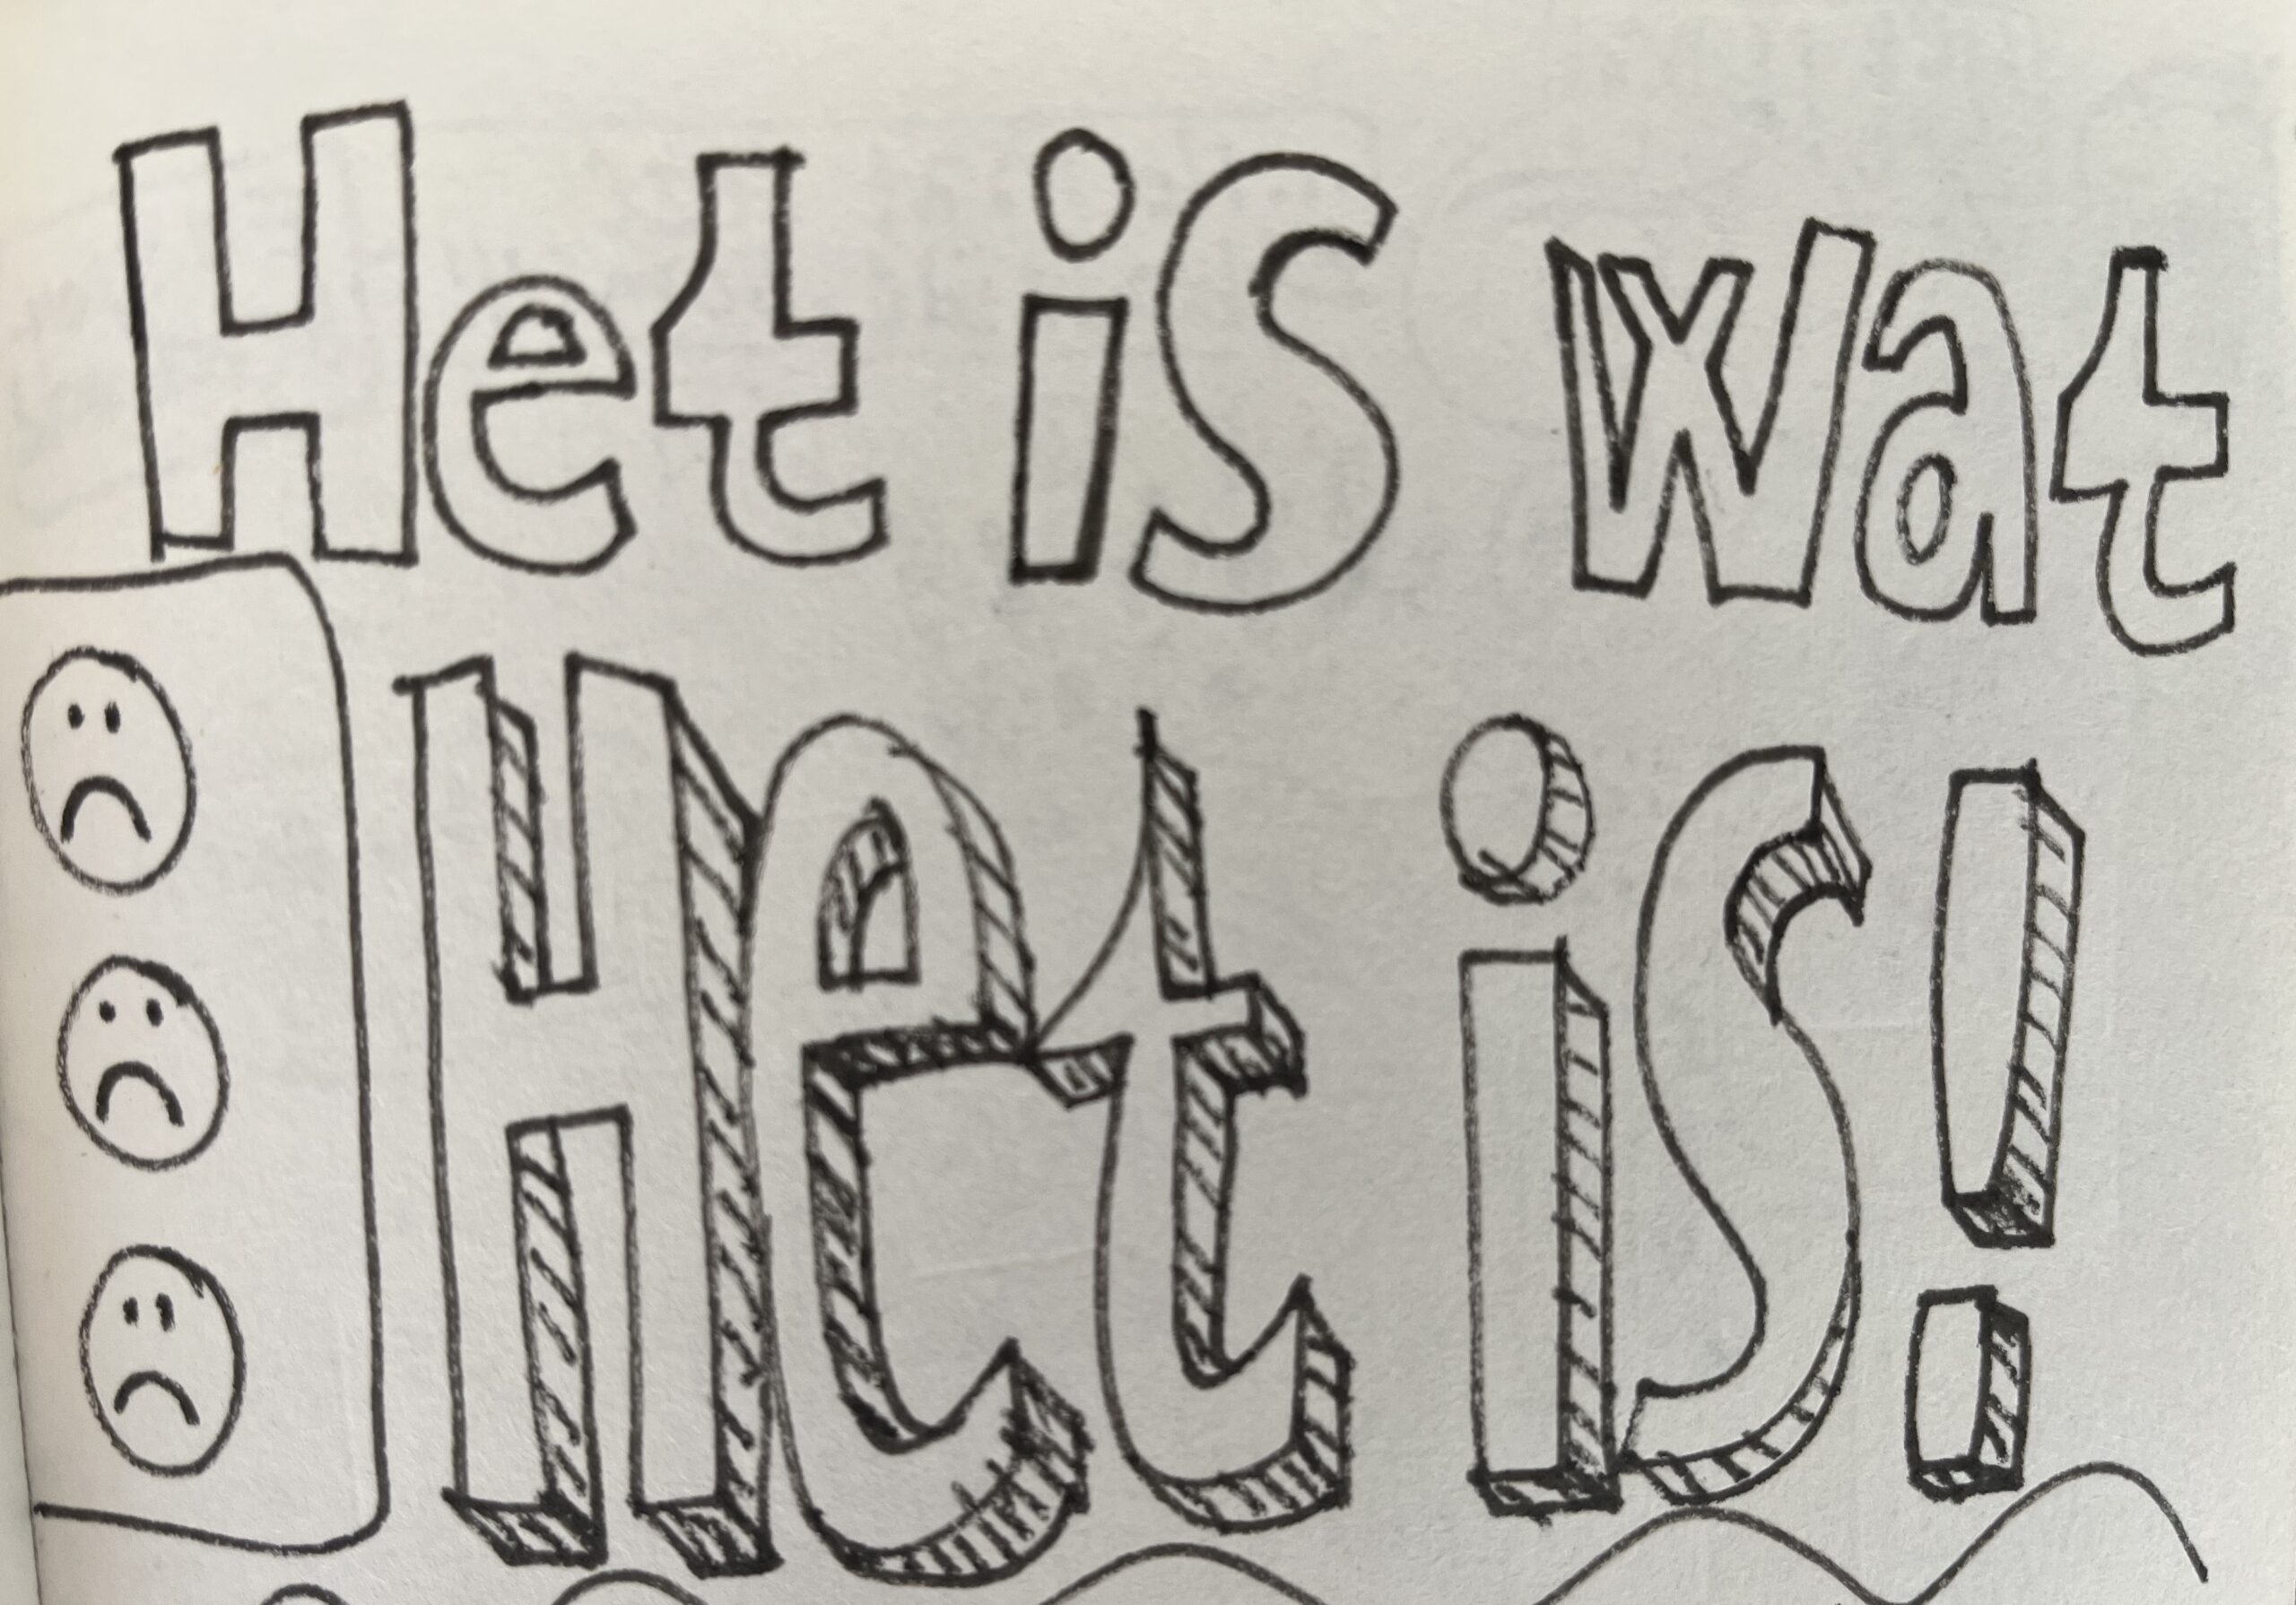 Het is wat
Het is!